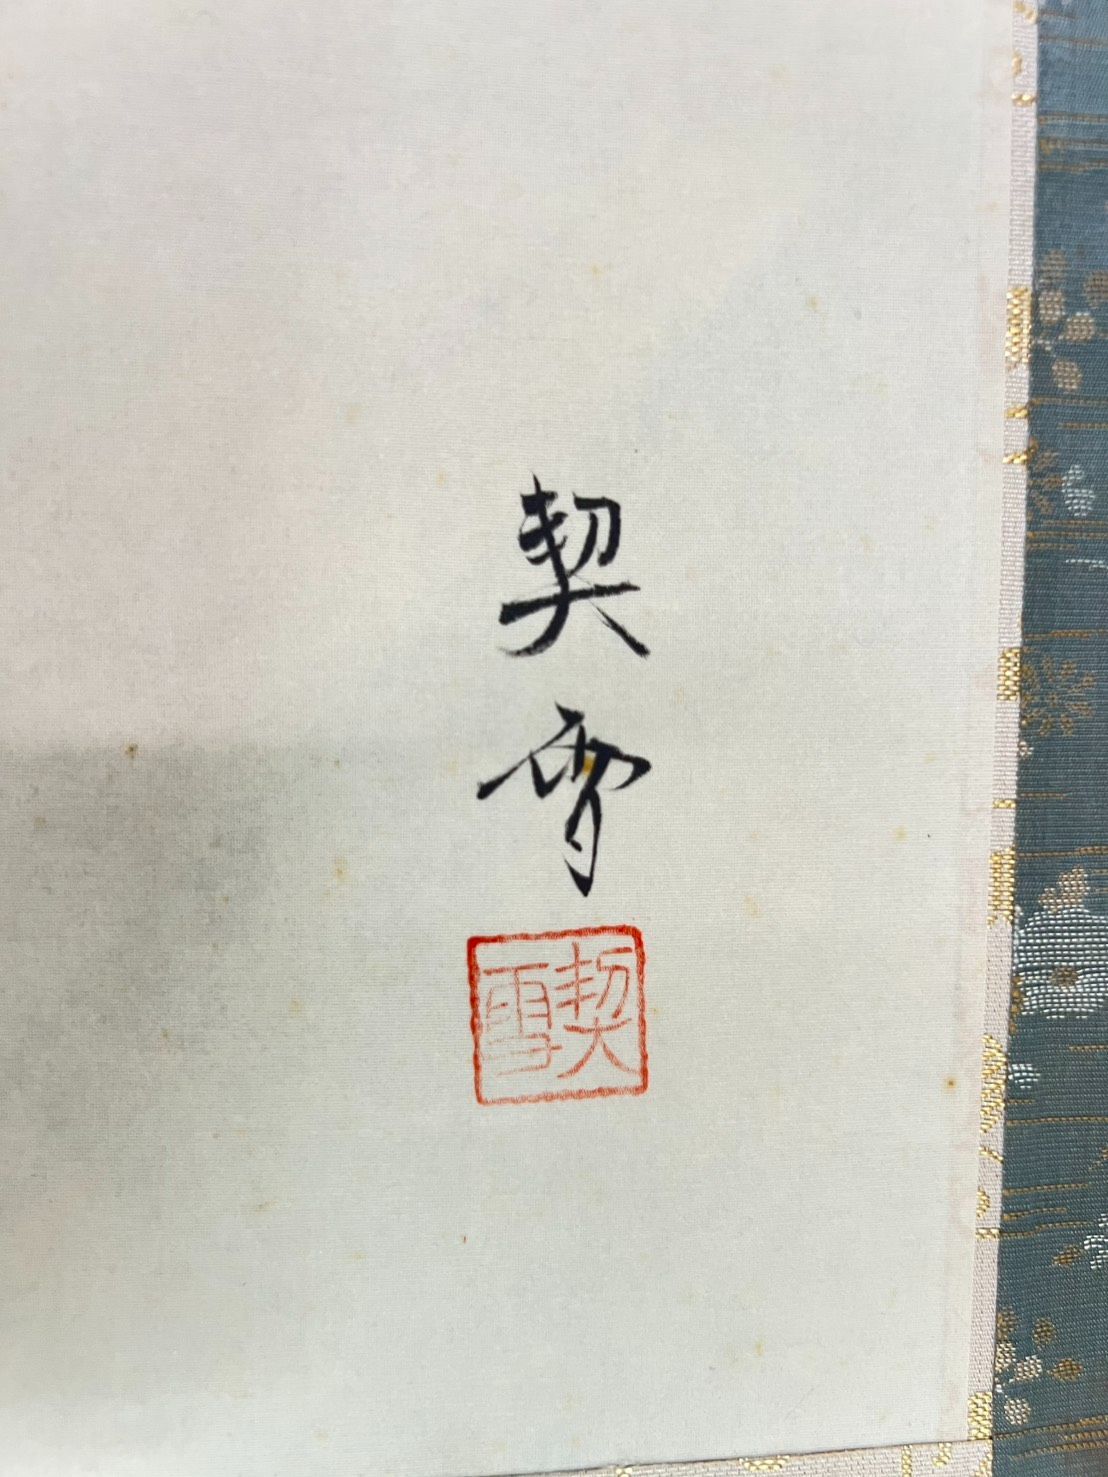 契雪
契雪